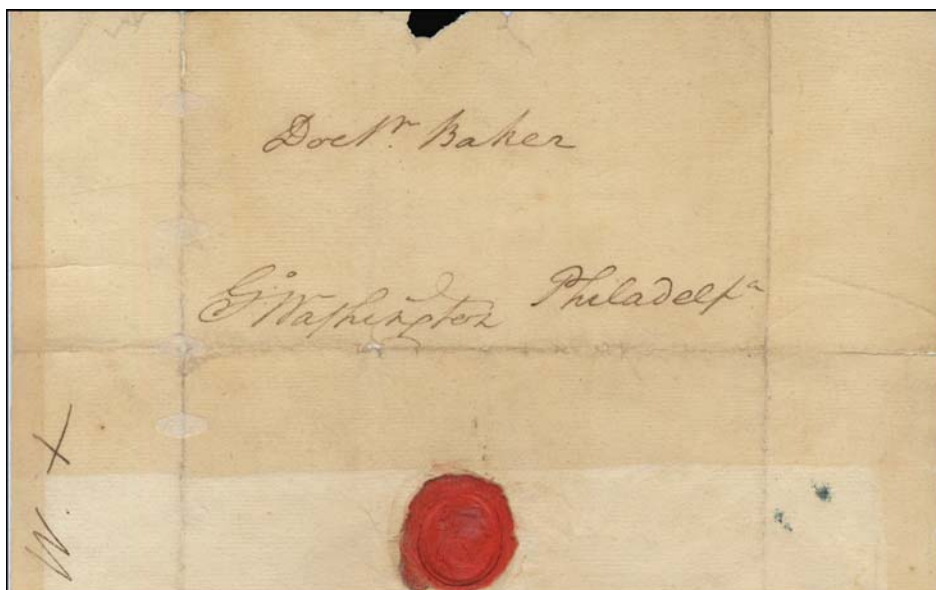 Doctr. Baker
Go Washington Philadelpa
W. X